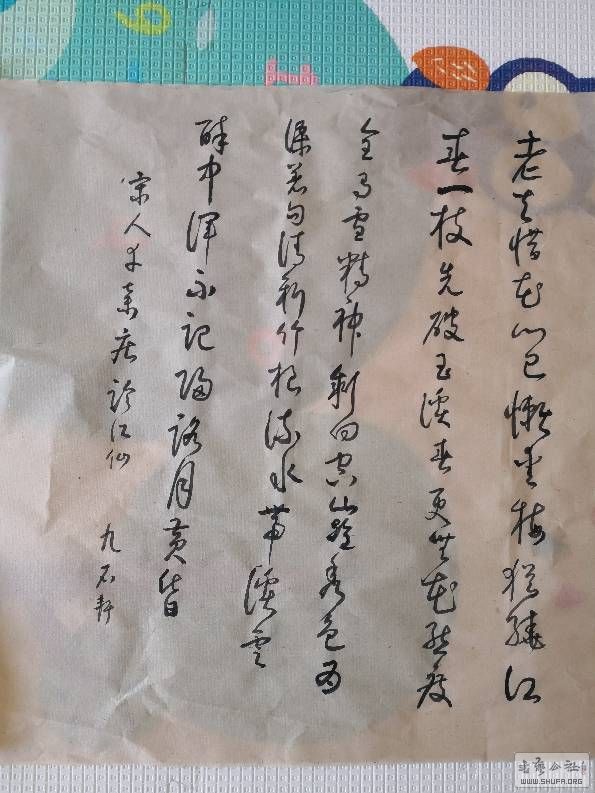 老去惜花心已懒爱梅犹绕江
春一枝先破玉溪春更无花态度
全有雪精神剩向空山餐秀色为
渠著句清新竹根流水帶溪雲
醉中渾不记归路月黄昏
宋人辛弃疾临江仙
九石轩
书艺公社
WWW.SHUFA.ORG